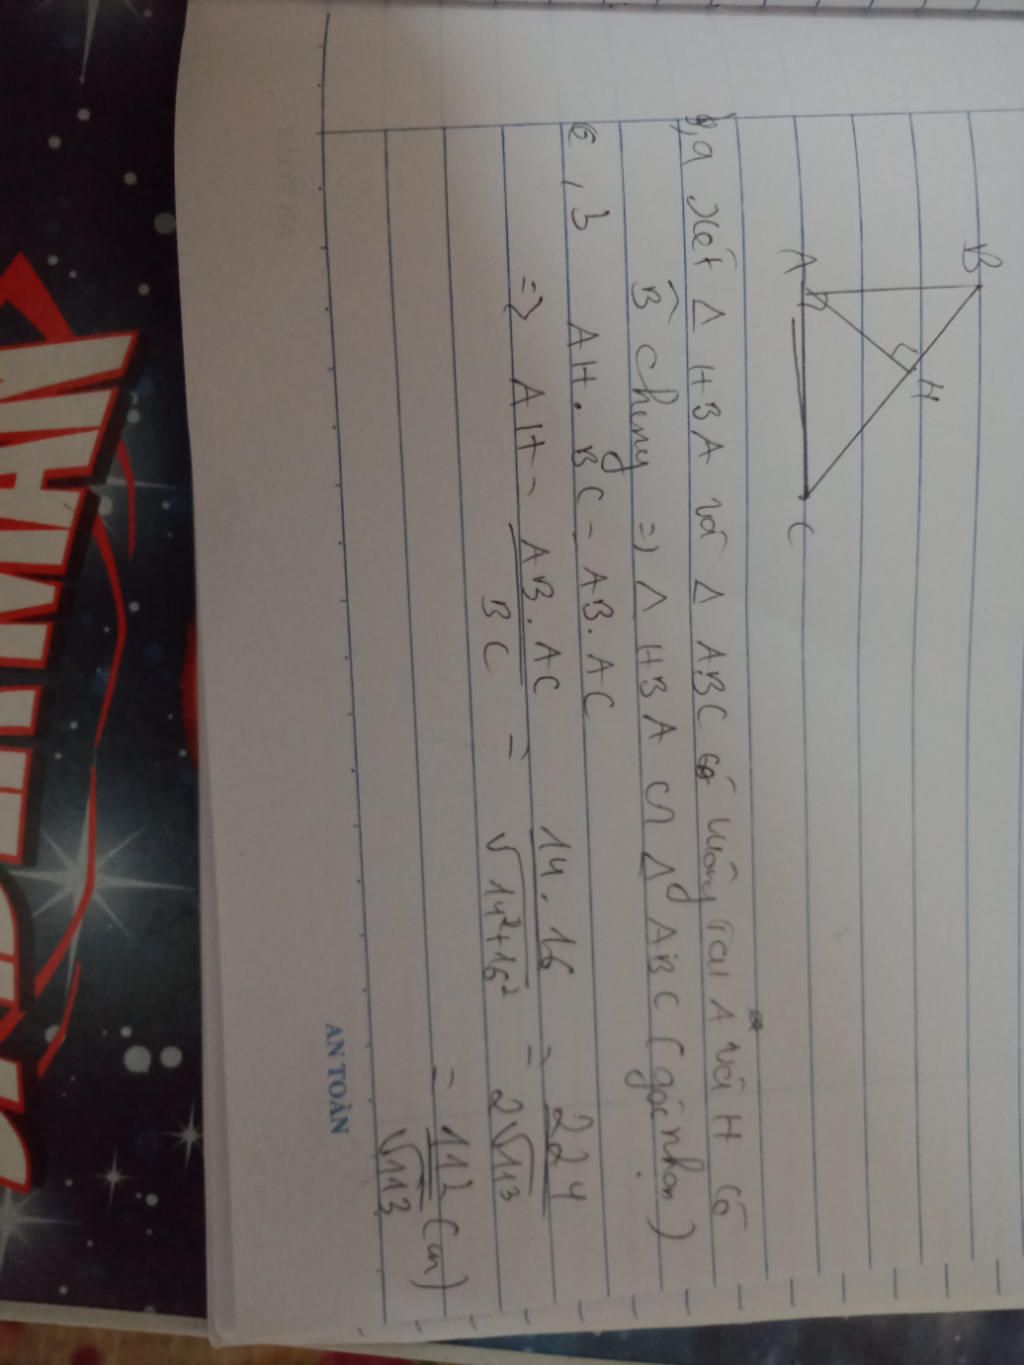 B
H
A
C
a Xét Δ HBA và Δ ABC có vuông tại A và H có
B̂ chung => Δ HBA ∽ Δ ABC (góc nhọn)
c, 3 AH. BC = AB. AC
=> AH = AB. AC / BC = 14. 16 / √14²+16² = 224 / 2√113
= 112 / √113 (cm)
AN TOÀN